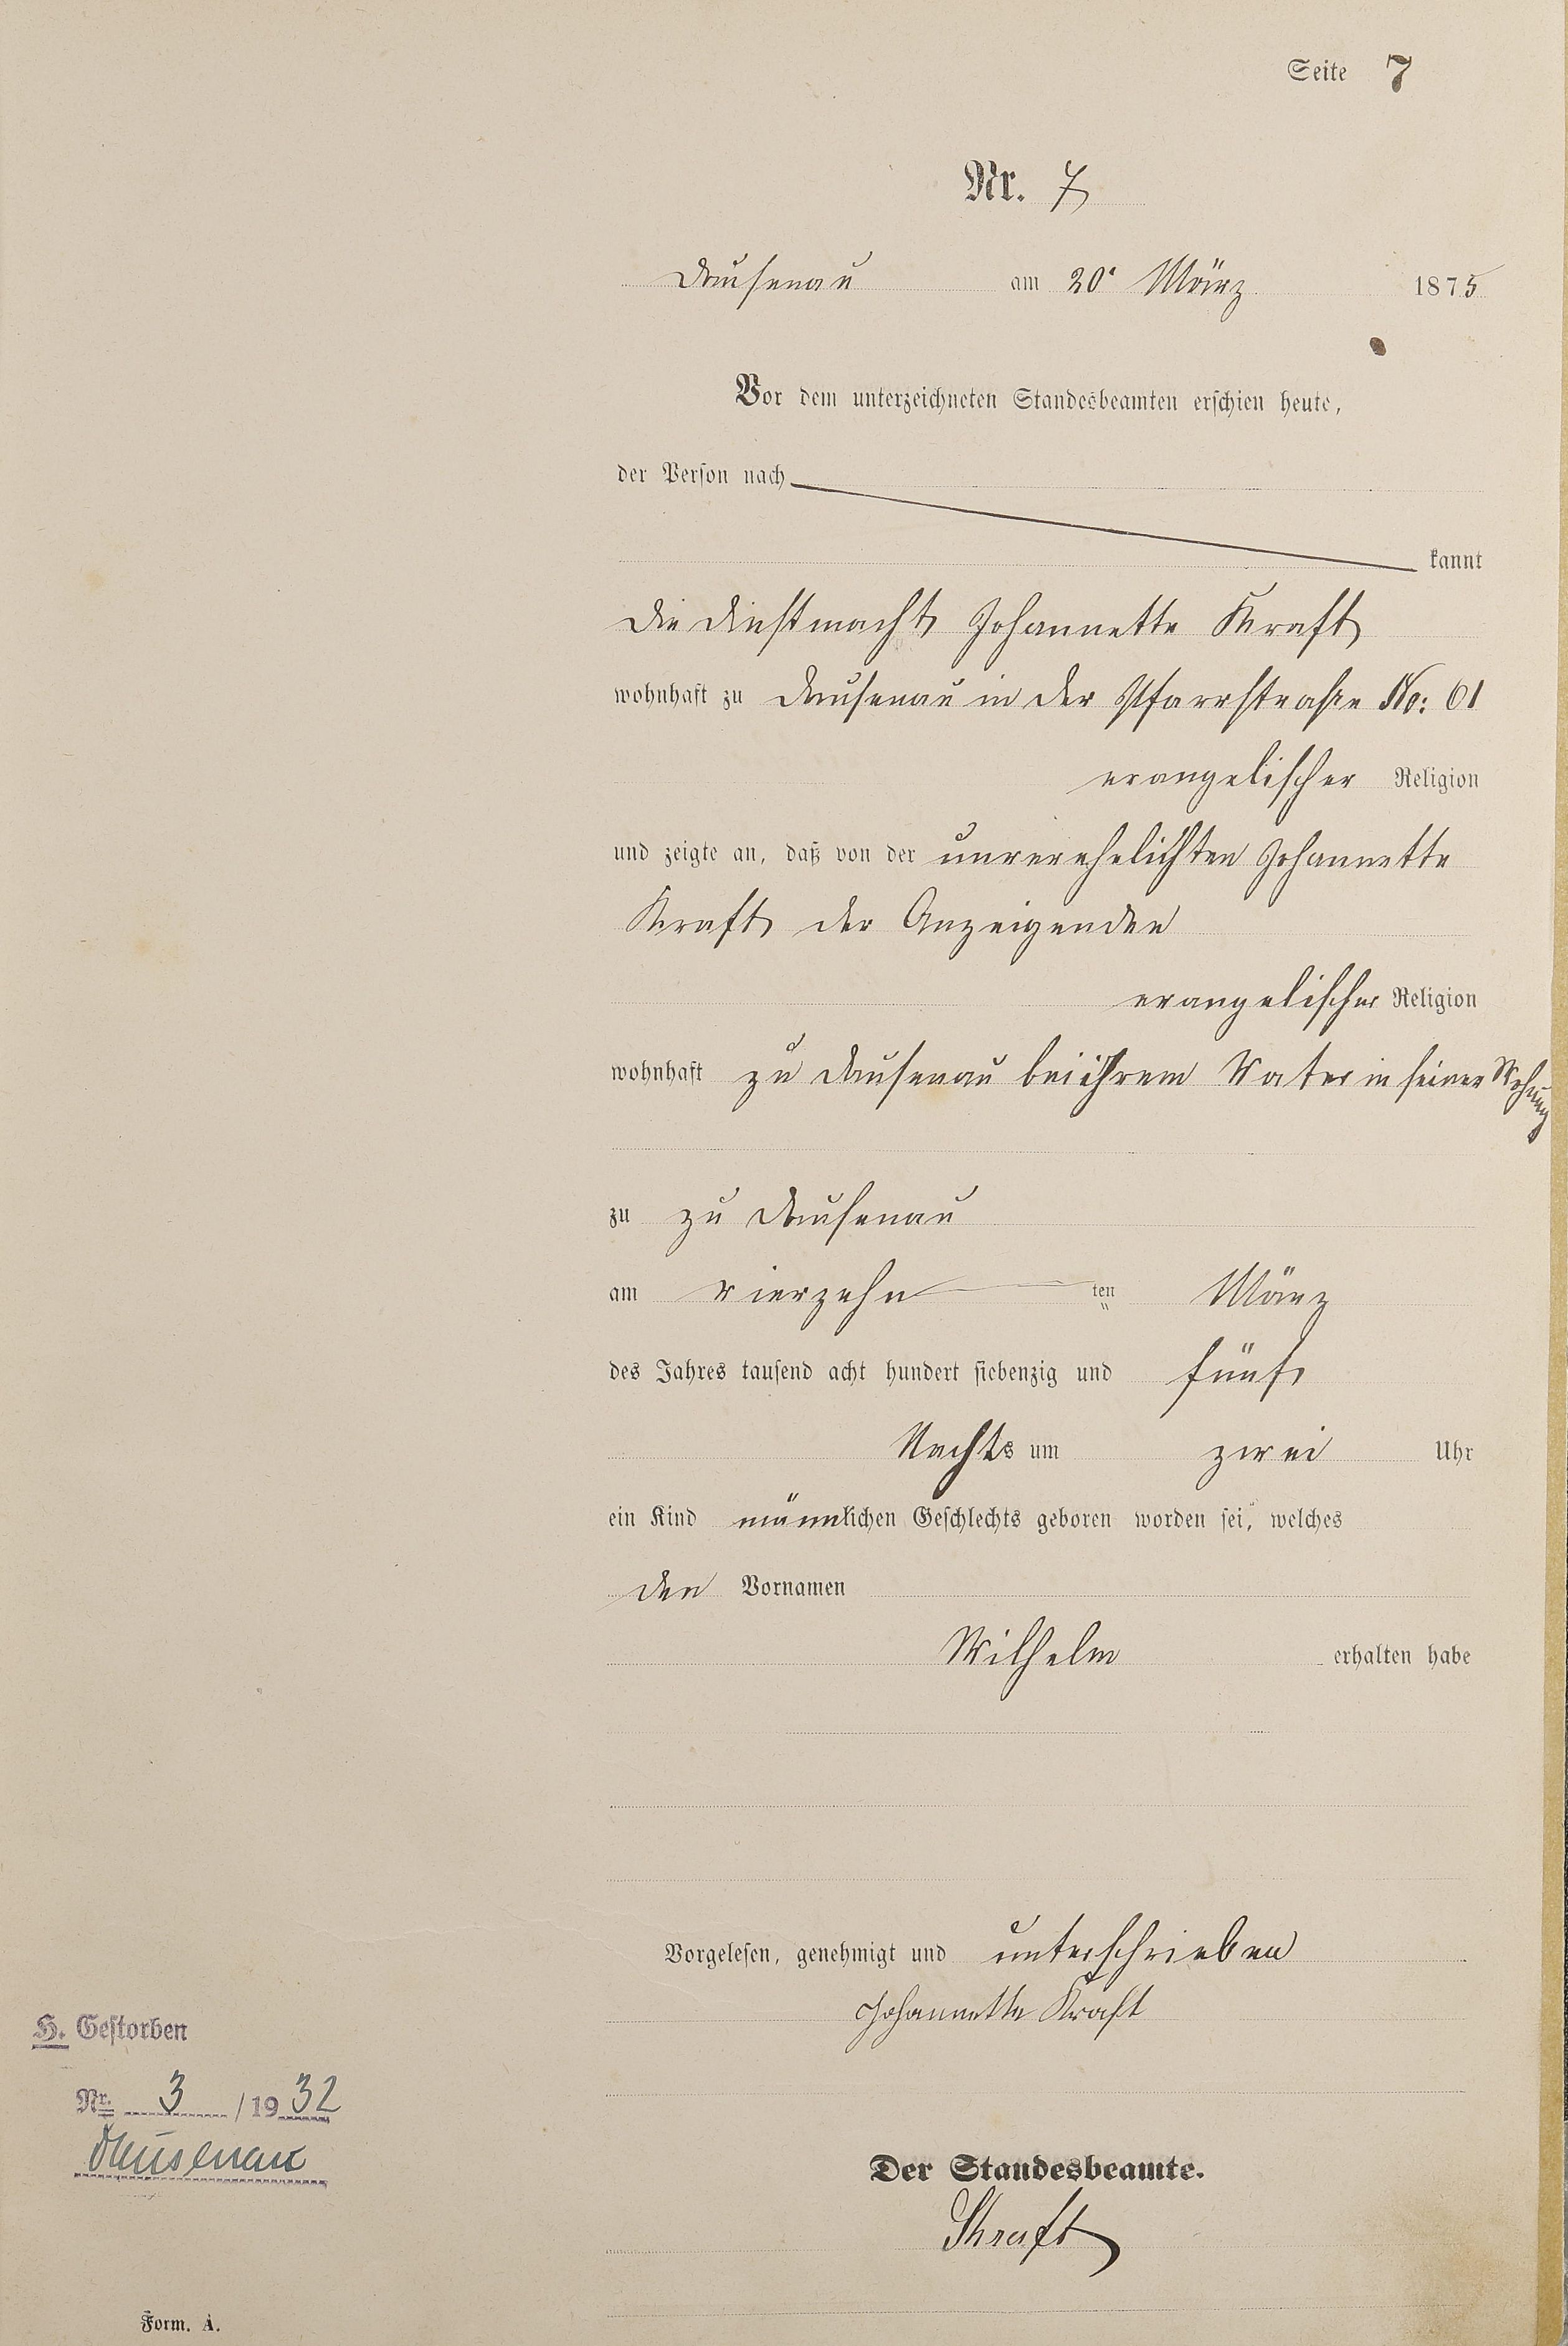 Seite 7
Nr. 7
Dausenau am 20t März 1875
Vor dem unterzeichneten Standesbeamten erschien heute,
der Person nach
kannt
die Dinstmacht Johannette Kraft
wohnhaft zu Dausenau in der Pfarrstraße No: 61
evangelischer Religion
und zeigte an, daß von der unverehelichten Johannette
Kraft der Anzeigenden
evangelischer Religion
wohnhaft zu Dausenau bei ihrem Vater in seiner Wohnung
zu zu Dausenau
am vierzehn ten März
des Jahres tausend acht hundert siebenzig und fünf
Nachts um zwei Uhr
ein Kind männlichen Geschlechts geboren worden sei, welches
den Vornamen
Wilhelm erhalten habe
Vorgelesen, genehmigt und unterschrieben
Johannette Kraft
H. Gestorben
Nr. 3 / 1932
Dausenau
Der Standesbeamte.
Form. A.